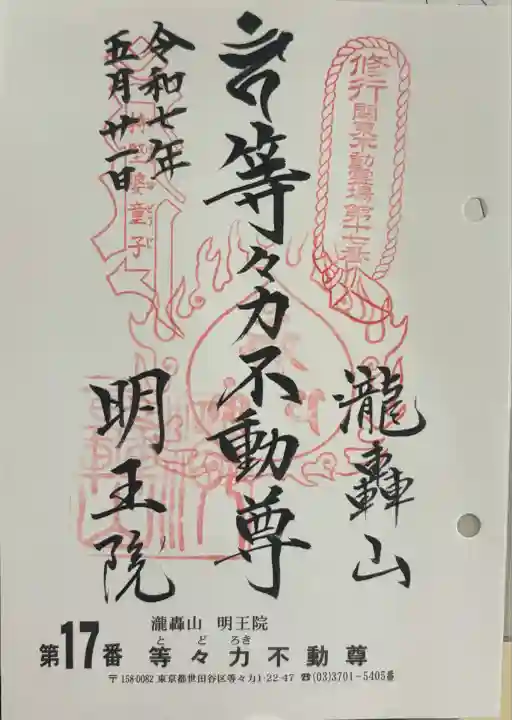 修行 関東不動霊場第十七番
瀧轟山
等々力不動尊
明王院
令和七年
五月廿一日
婆童子
瀧轟山 明王院
とどろき
第17番 等々力不動尊
〒158-0082 東京都世田谷区等々力1-22-47 ☎(03)3701-5405番